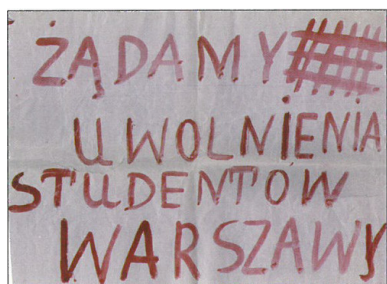 ŻĄDAMY
UWOLNIENIA
STUDENTOW
WARSZAWY